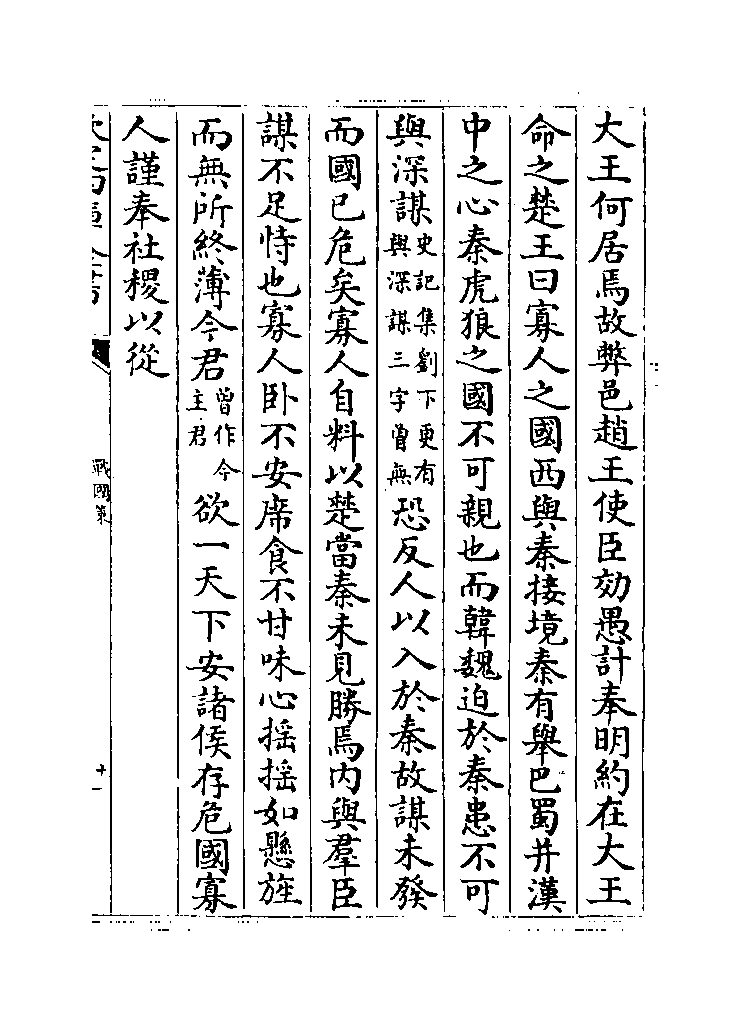 大王何居焉故弊邑趙王使臣効愚計奉明約在大王
命之楚王曰寡人之國西與秦接境秦有舉巴蜀并漢
中之心秦虎狼之國不可親也而韓魏迫於秦患不可
與深謀史記集劉下更有與深謀三字曽無恐反人以入於秦故謀未發
而國已危矣寡人自料以楚當秦未見勝焉内與羣臣
謀不足恃也寡人卧不安席食不甘味心揺揺如懸旌
而無所終薄今君曽作今主君欲一天下安諸侯存危國寡
人謹奉社稷以從
戰國策
十一